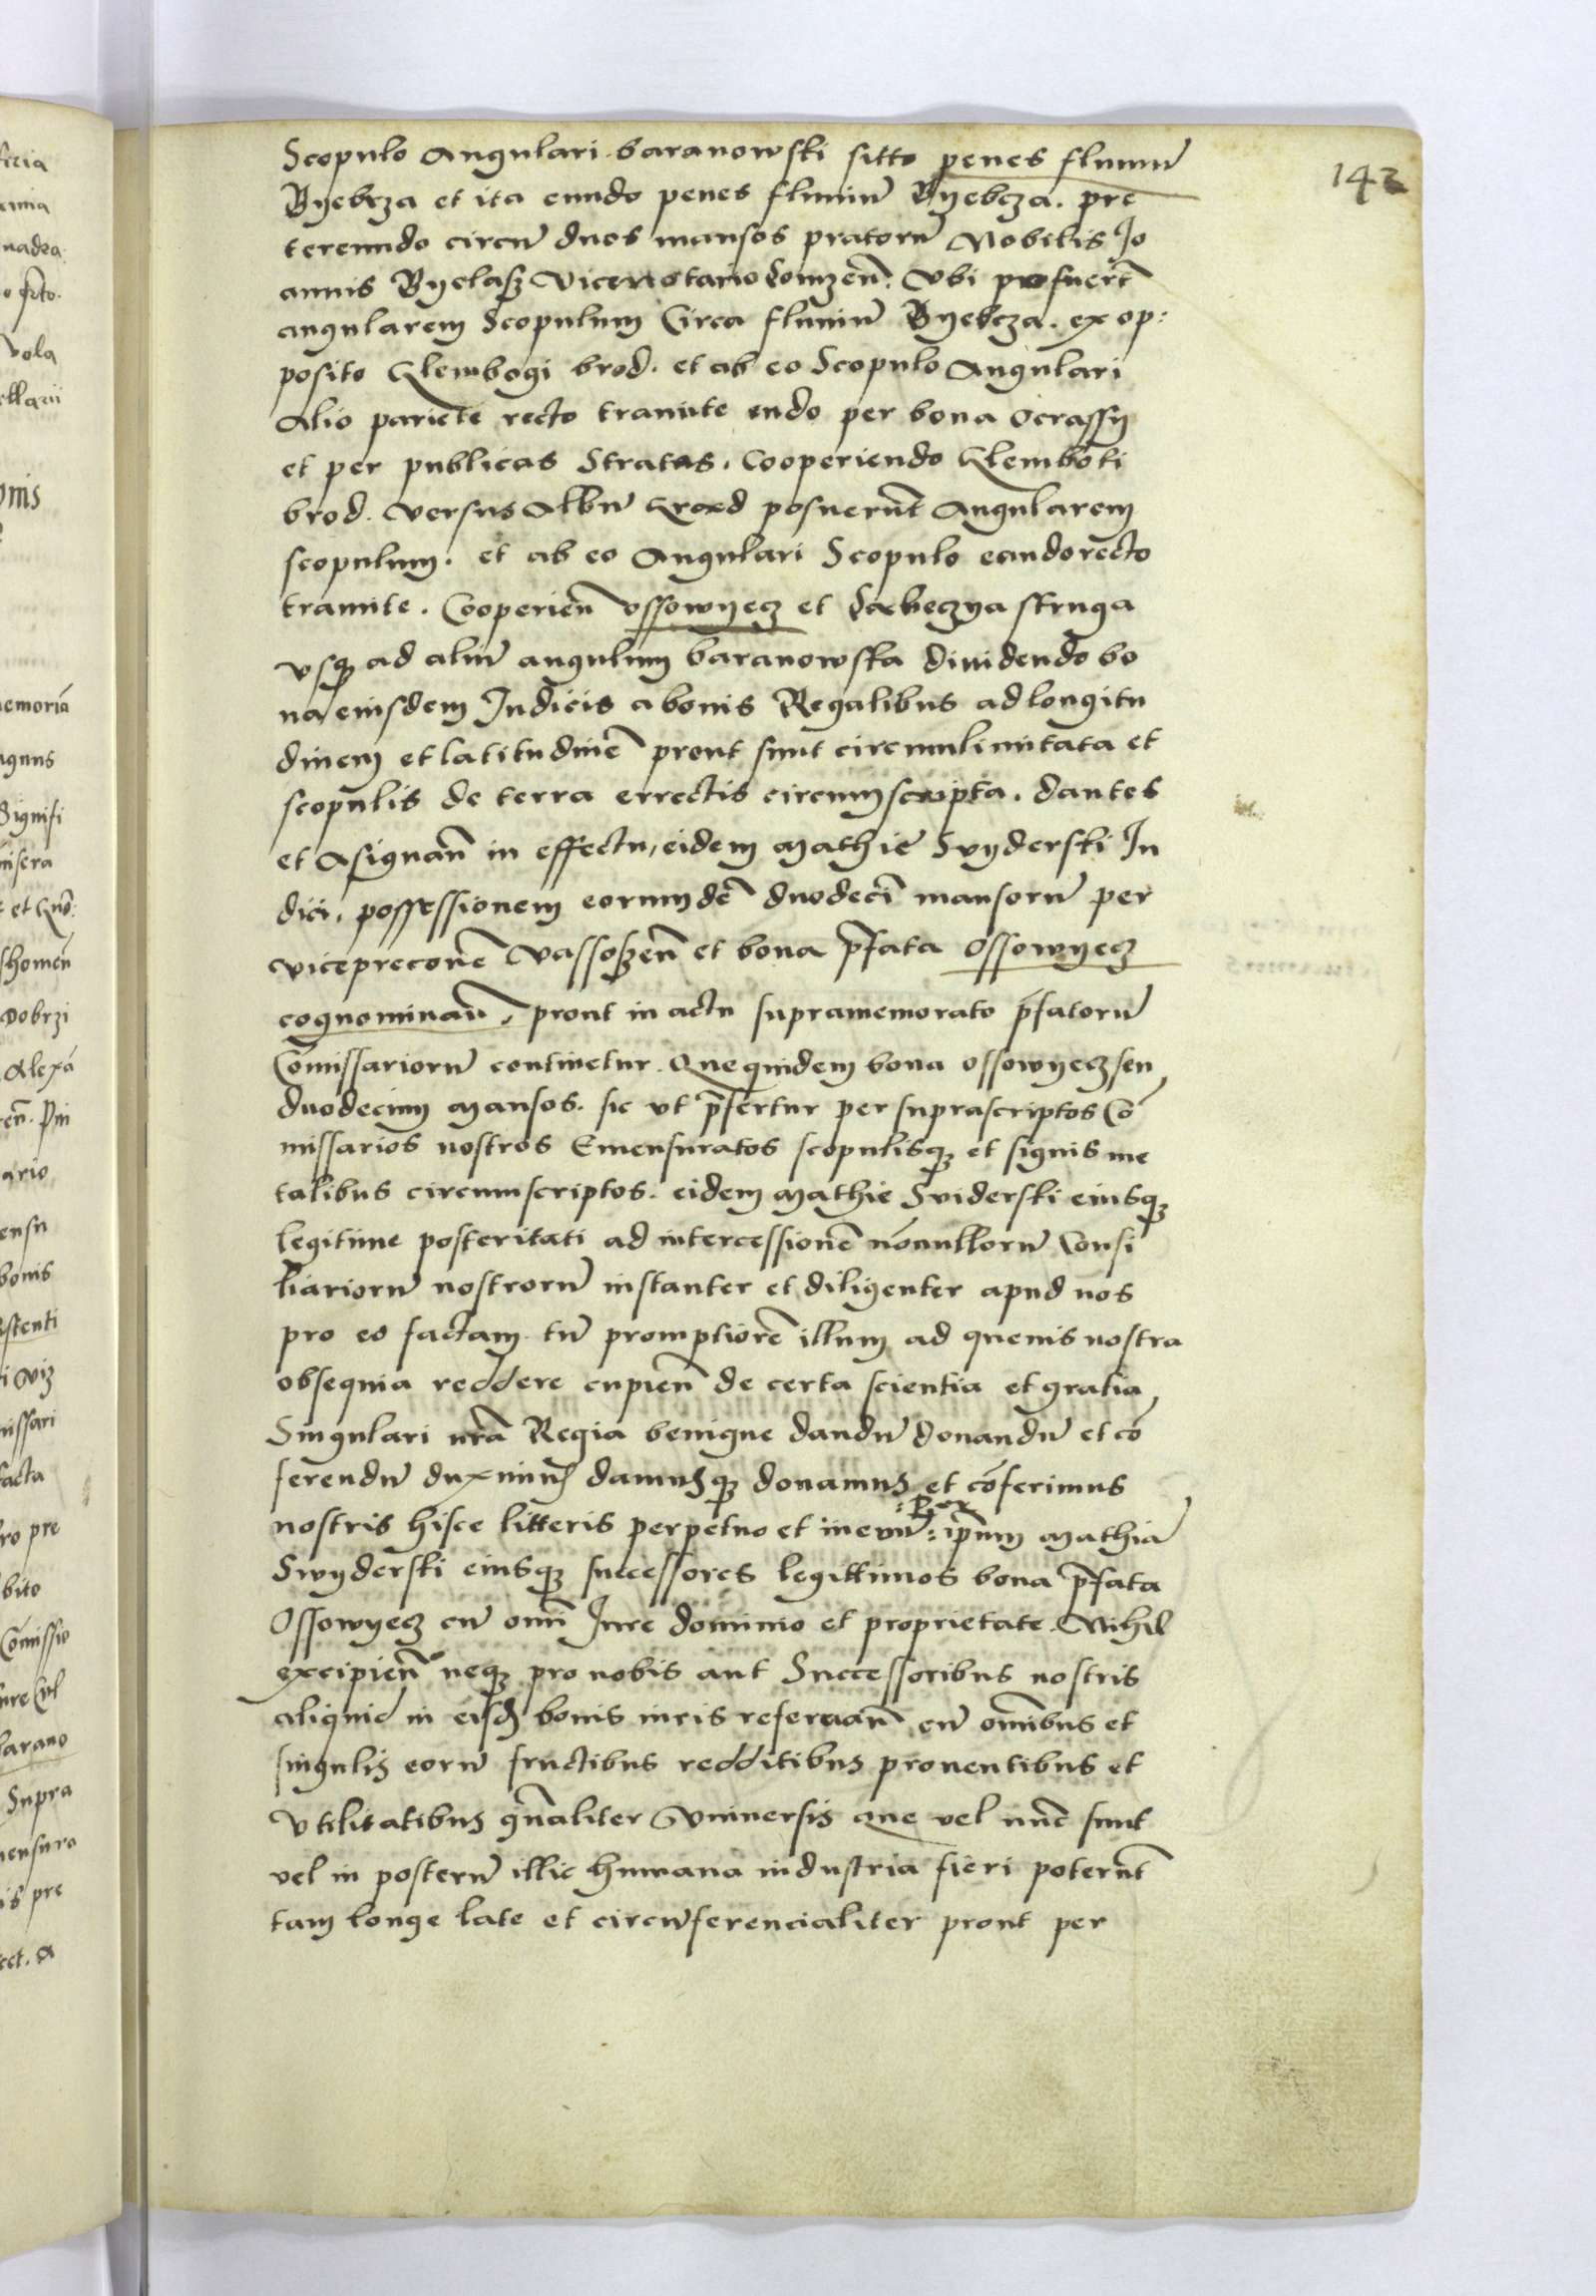 142
Scopulo Angulari baranowski sitto penes fluuiũ
Byebrza et ita eundo penes fluuiũ Byebrza. pre
tereundo circũ duos mansos pratorũ Nobilis Jo
annis Byelasz Vicenotario Lomzeñ. Vbi posuert̃
angularem Scopulum Circa fluuiũ Byebrza. ex op:
posito Klembogi brod. et ab eo Scopulo Angulari
Alio pariete recto tramite eñdo per bona Ocrassy
et per publicas Stratas. Cooperiendo Klemboki
brod. versus Albũ Grod posuerũt Angularem
scopulum. et ab eo Angulari Scopulo eundo recto
tramite. Cooperieñ Ossowyecz et struga
vsq3 ad aliũ angulum baranowska diuidendo bo
na eiusdem Judicis a bonis Regalibus ad longitu
dinem et latitudinẽ prout sunt circumlimitata et
scopulis de terra errectis circumscripta. dantes
et Asignañ in effectu, eidem Mathie Svyderski Ju
dici, possessionem eorumdẽ duodecĩ mansorũ per
vicepreconẽ Vassoszeñ et bona p̃fata Ossowyecz
cognominañ, prout in actu supramemorato p̃fatorũ
Com̃issariorũ continetur. Que quidem bona Ossowyecz seu
duodecim Mansos. sic vt p̃fertur per suprascriptos Cõ
missarios nostros Emensuratos scopulisq3 et signis me
talibus circumscriptos. eidem Mathie Sviderski eiusq3
legitime posteritati ad intercessionẽ nõnullorũ Consi
liariorũ nostrorũ instanter et diligenter apud nos
pro eo factam tũ promptiorẽ illum ad queuis nostra
obsequia reddere cupieñ de certa scientia et gratia
Singulari nr̃a Regia benigne dandũ donandũ et cõ
ferendũ duximus damusq3 donamus et cõferimus
nostris hisce litteris perpetuo et in euũ : per : ip̃um Mathiã
Swyderski eiusq3 successores legittimos bona p̃fata
Ossowyecz cũ om̃i Jure dominio et proprietate. Nihil
excipieñ neq3 pro nobis aut Successoribus nostris
aliquid in eisd̃ bonis iuris reseruañ cũ om̃ibus et
singulis eorũ fructibus redditibus prouentibus et
vtilitatibus gñaliter Vniuersis que vel nũc sunt
vel in posterũ illic humana industria fieri poterũt
tam longe late et circũferencialiter prout per